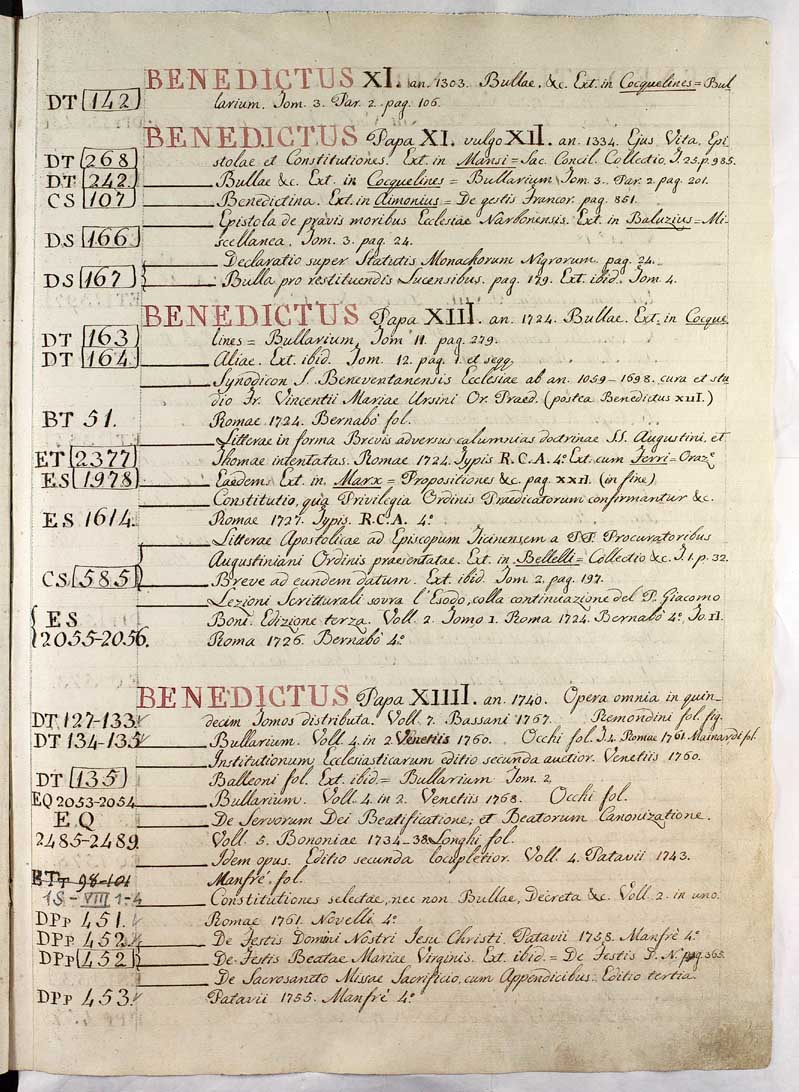 BENEDICTUS XI. an. 1303. Bullae. &c. Ext. in Cocquelines = Bul-
DT 142 larium. Tom. 3. Par. 2. pag. 106.
BENEDICTUS Papa XI. vulgo XII. an. 1334. Ejus Vita. Epi-
DT 268 stolae et Constitutiones. Ext. in Mansi = Sac. Concil. Collectio. T. 25. p. 985.
DT 242. Bullae &c. Ext. in Cocquelines = Bullarium Tom. 3. Par. 2. pag. 201.
CS 107 Benedictina. Ext. in Aimonius = De gestis Francor. pag. 851.
Epistola de pravis moribus Ecclesiae Narbonensis. Ext. in Baluzius = Mi-
DS 166 scellanea. Tom. 3. pag. 24.
Declaratio super Statutis Monachorum Nigrorum. pag. 24.
DS 167 Bulla pro restituendis Lucensibus. pag. 179. Ext. ibid. Tom. 4.
BENEDICTUS Papa XIII. an. 1724. Bullae. Ext. in Cocque-
DT 163 lines = Bullarium, Tom. 11. pag. 279.
DT 164. Aliae. Ext. ibid. Tom. 12. pag. 1. et seqq.
Synodicon S. Beneventanensis Ecclesiae ab an. 1059-1698. cura et stu-
dio Fr. Vincentii Mariae Ursini Or. Praed. (postea Benedictus XIII.)
BT 51. Romae 1724. Bernabò fol.
Litterae in forma Brevis adversus calumnias doctrinae SS. Augustini, et
ET 2377 Thomae intentatas. Romae 1724. Typis R.C.A. 4º Ext. cum Ferri = Orazº
ES 1978 Eaedem. Ext. in Marx = Propositiones &c. pag. XXII. (in fine)
Constitutio, qua Privilegia Ordinis Praedicatorum confirmantur &c.
ES 1614. Romae 1727. Typis. R.C.A. 4º
Litterae Apostolicae ad Episcopum Ticinensem a PP. Procuratoribus
Augustiniani Ordinis praesentatae. Ext. in Bellelli = Collectio &c. T. 1. p. 32.
CS 585 Breve ad eundem datum. Ext. ibid. Tom. 2. pag. 197.
Lezioni Scritturali sovra l'Esodo, colla continuazione del P. Giacomo
ES Boni. Edizione terza. Voll. 2. Tomo 1. Roma 1724. Bernabò 4º, To. II.
2055-2056. Roma 1726. Bernabò 4º
BENEDICTUS Papa XIIII. an. 1740. Opera omnia in quin-
DT 127-133 decim Tomos distributa. Voll. 7. Bassani 1767. Remondini fol. fig.
DT 134-135 Bullarium. Voll. 4. in 2. Venetiis 1760. Occhi fol. T. 4. Romae 1761. Mainardi fol.
Institutionum Ecclesiasticarum editio secunda auctior. Venetiis 1760.
DT 135 Balleoni fol. Ext. ibid = Bullarium Tom. 2
EQ 2053-2054 Bullarium. Voll. 4. in 2. Venetiis 1768. Occhi fol.
EQ De Servorum Dei Beatificatione, et Beatorum Canonizatione.
2485-2489. Voll. 5. Bononiae 1734-38. Longhi fol.
Idem opus. Editio secunda locupletior. Voll. 4. Patavii 1743.
98-101 Manfrè. fol.
18-VIII 1-4 Constitutiones selectae, nec non Bullae, Decreta &c. Voll. 2. in uno.
DPp 451. Romae 1761. Novelli 4º
DPp 452. De Festis Domini Nostri Iesu Christi. Patavii 1758. Manfrè 4º
DPp 452 De Festis Beatae Mariae Virginis. Ext. ibid. = De Festis D. N. pag. 365.
De Sacrosancto Missae Sacrificio, cum Appendicibus. Editio tertia
DPp 453. Patavii 1755. Manfrè 4º